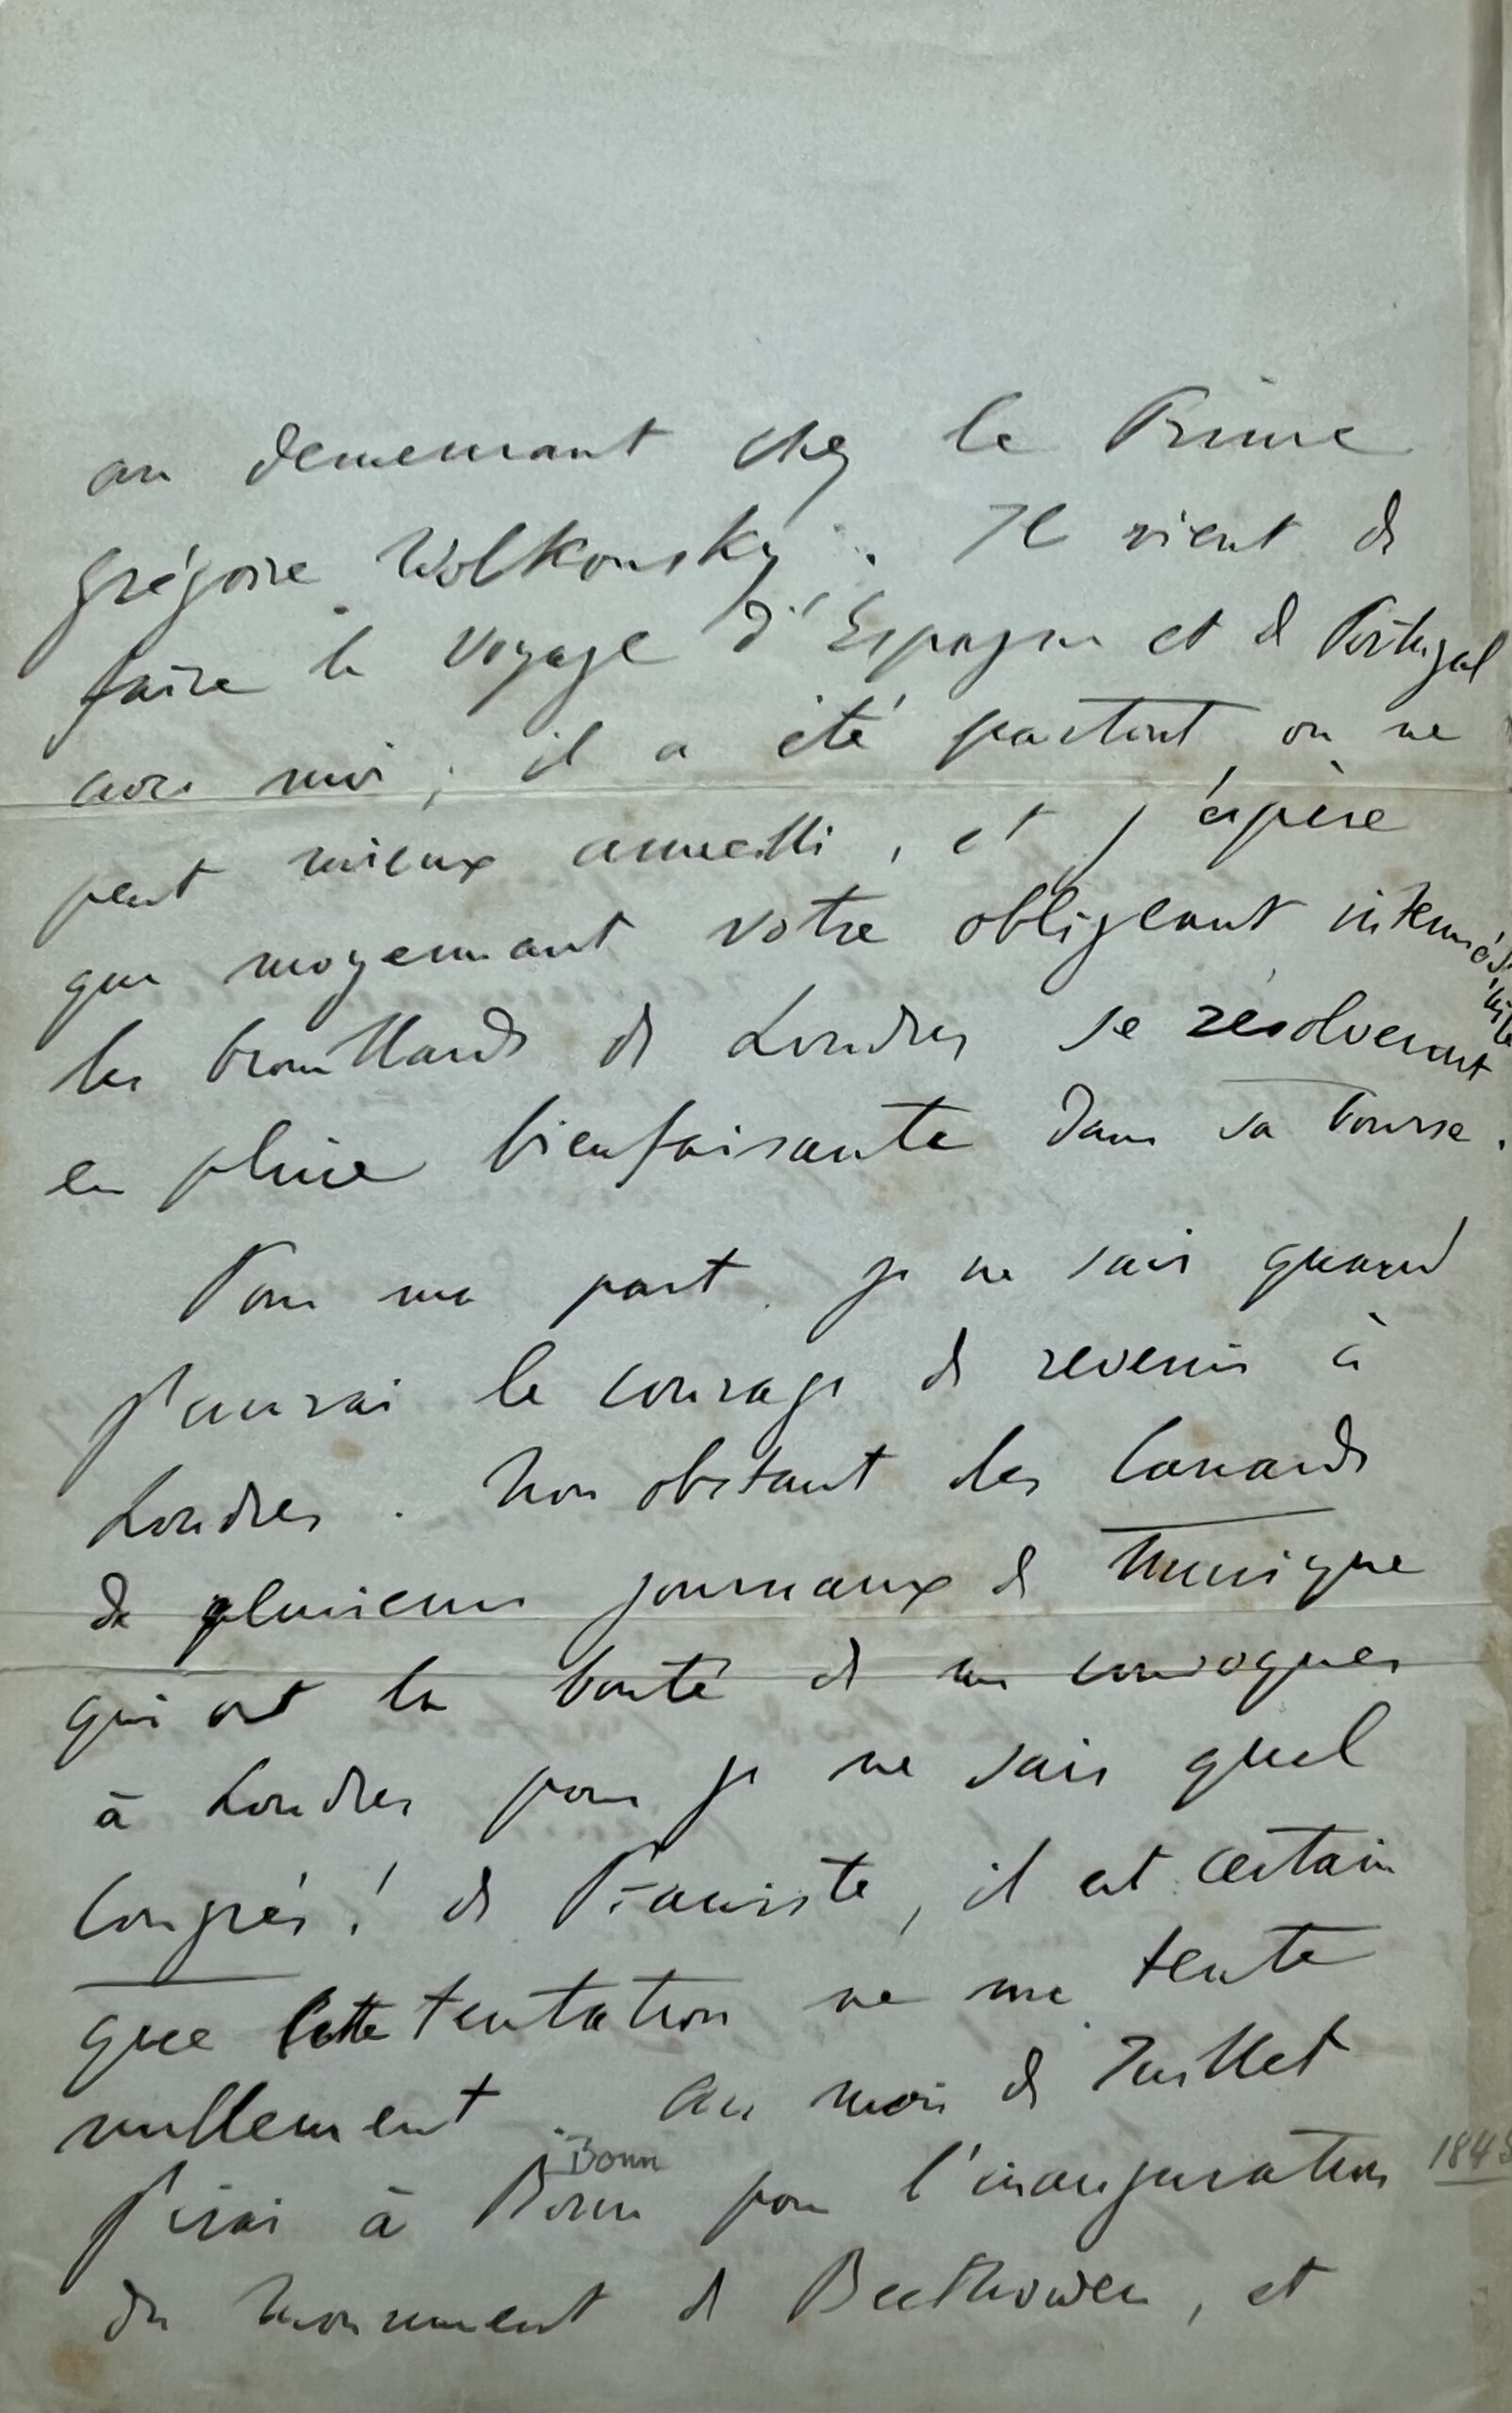 au demeurant chez le Prince
Grégoire Wolkonsky. Il vient de
faire le voyage d'Espagne et de Portugal
avec moi; il a été partout on ne
peut mieux accueilli, et j'espère
que moyennant votre obligeant intermé
les brouillards de Londres se résolveront
en pluie bienfaisante dans sa bourse.
Pour ma part je ne sais quand
j'aurai le courage de revenir à
Londres. Non obstant les Canards
de plusieurs journaux de Musique
qui ont la bonté de me convoquer
à Londres pour je ne sais quel
Congrès! de Pianiste, il est certain
que cette tentation ne me tente
nullement. Au mois de Juillet
Bonn
j'irai à Bonn pour l'inauguration 1845
du monument de Beethowen, et